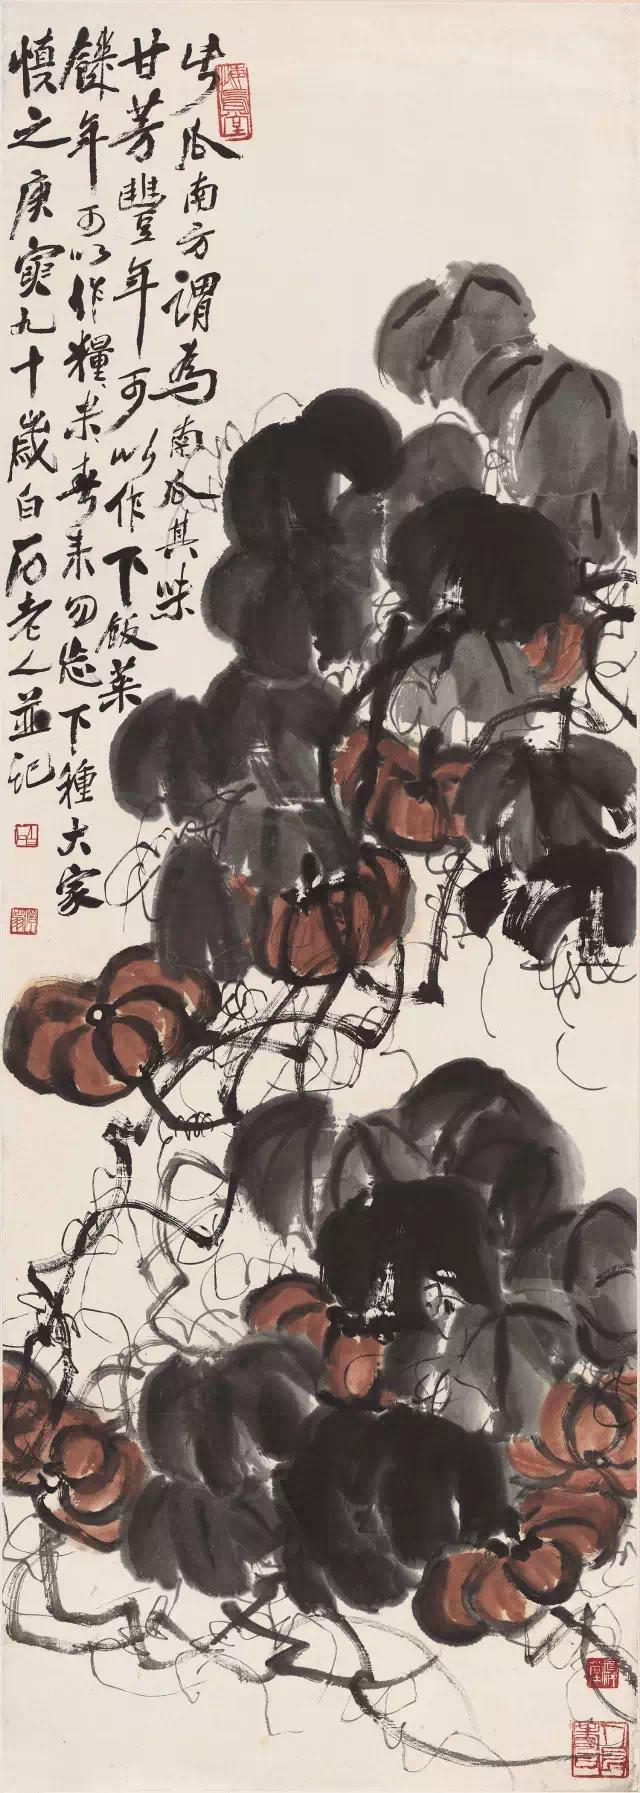 此瓜南方謂為南瓜其味
甘芳豐年可以作下飯菜
饑年可以作糧米春来勿忘下種大家
慎之庚寅九十歲白石老人並記
悔烏堂
人長壽